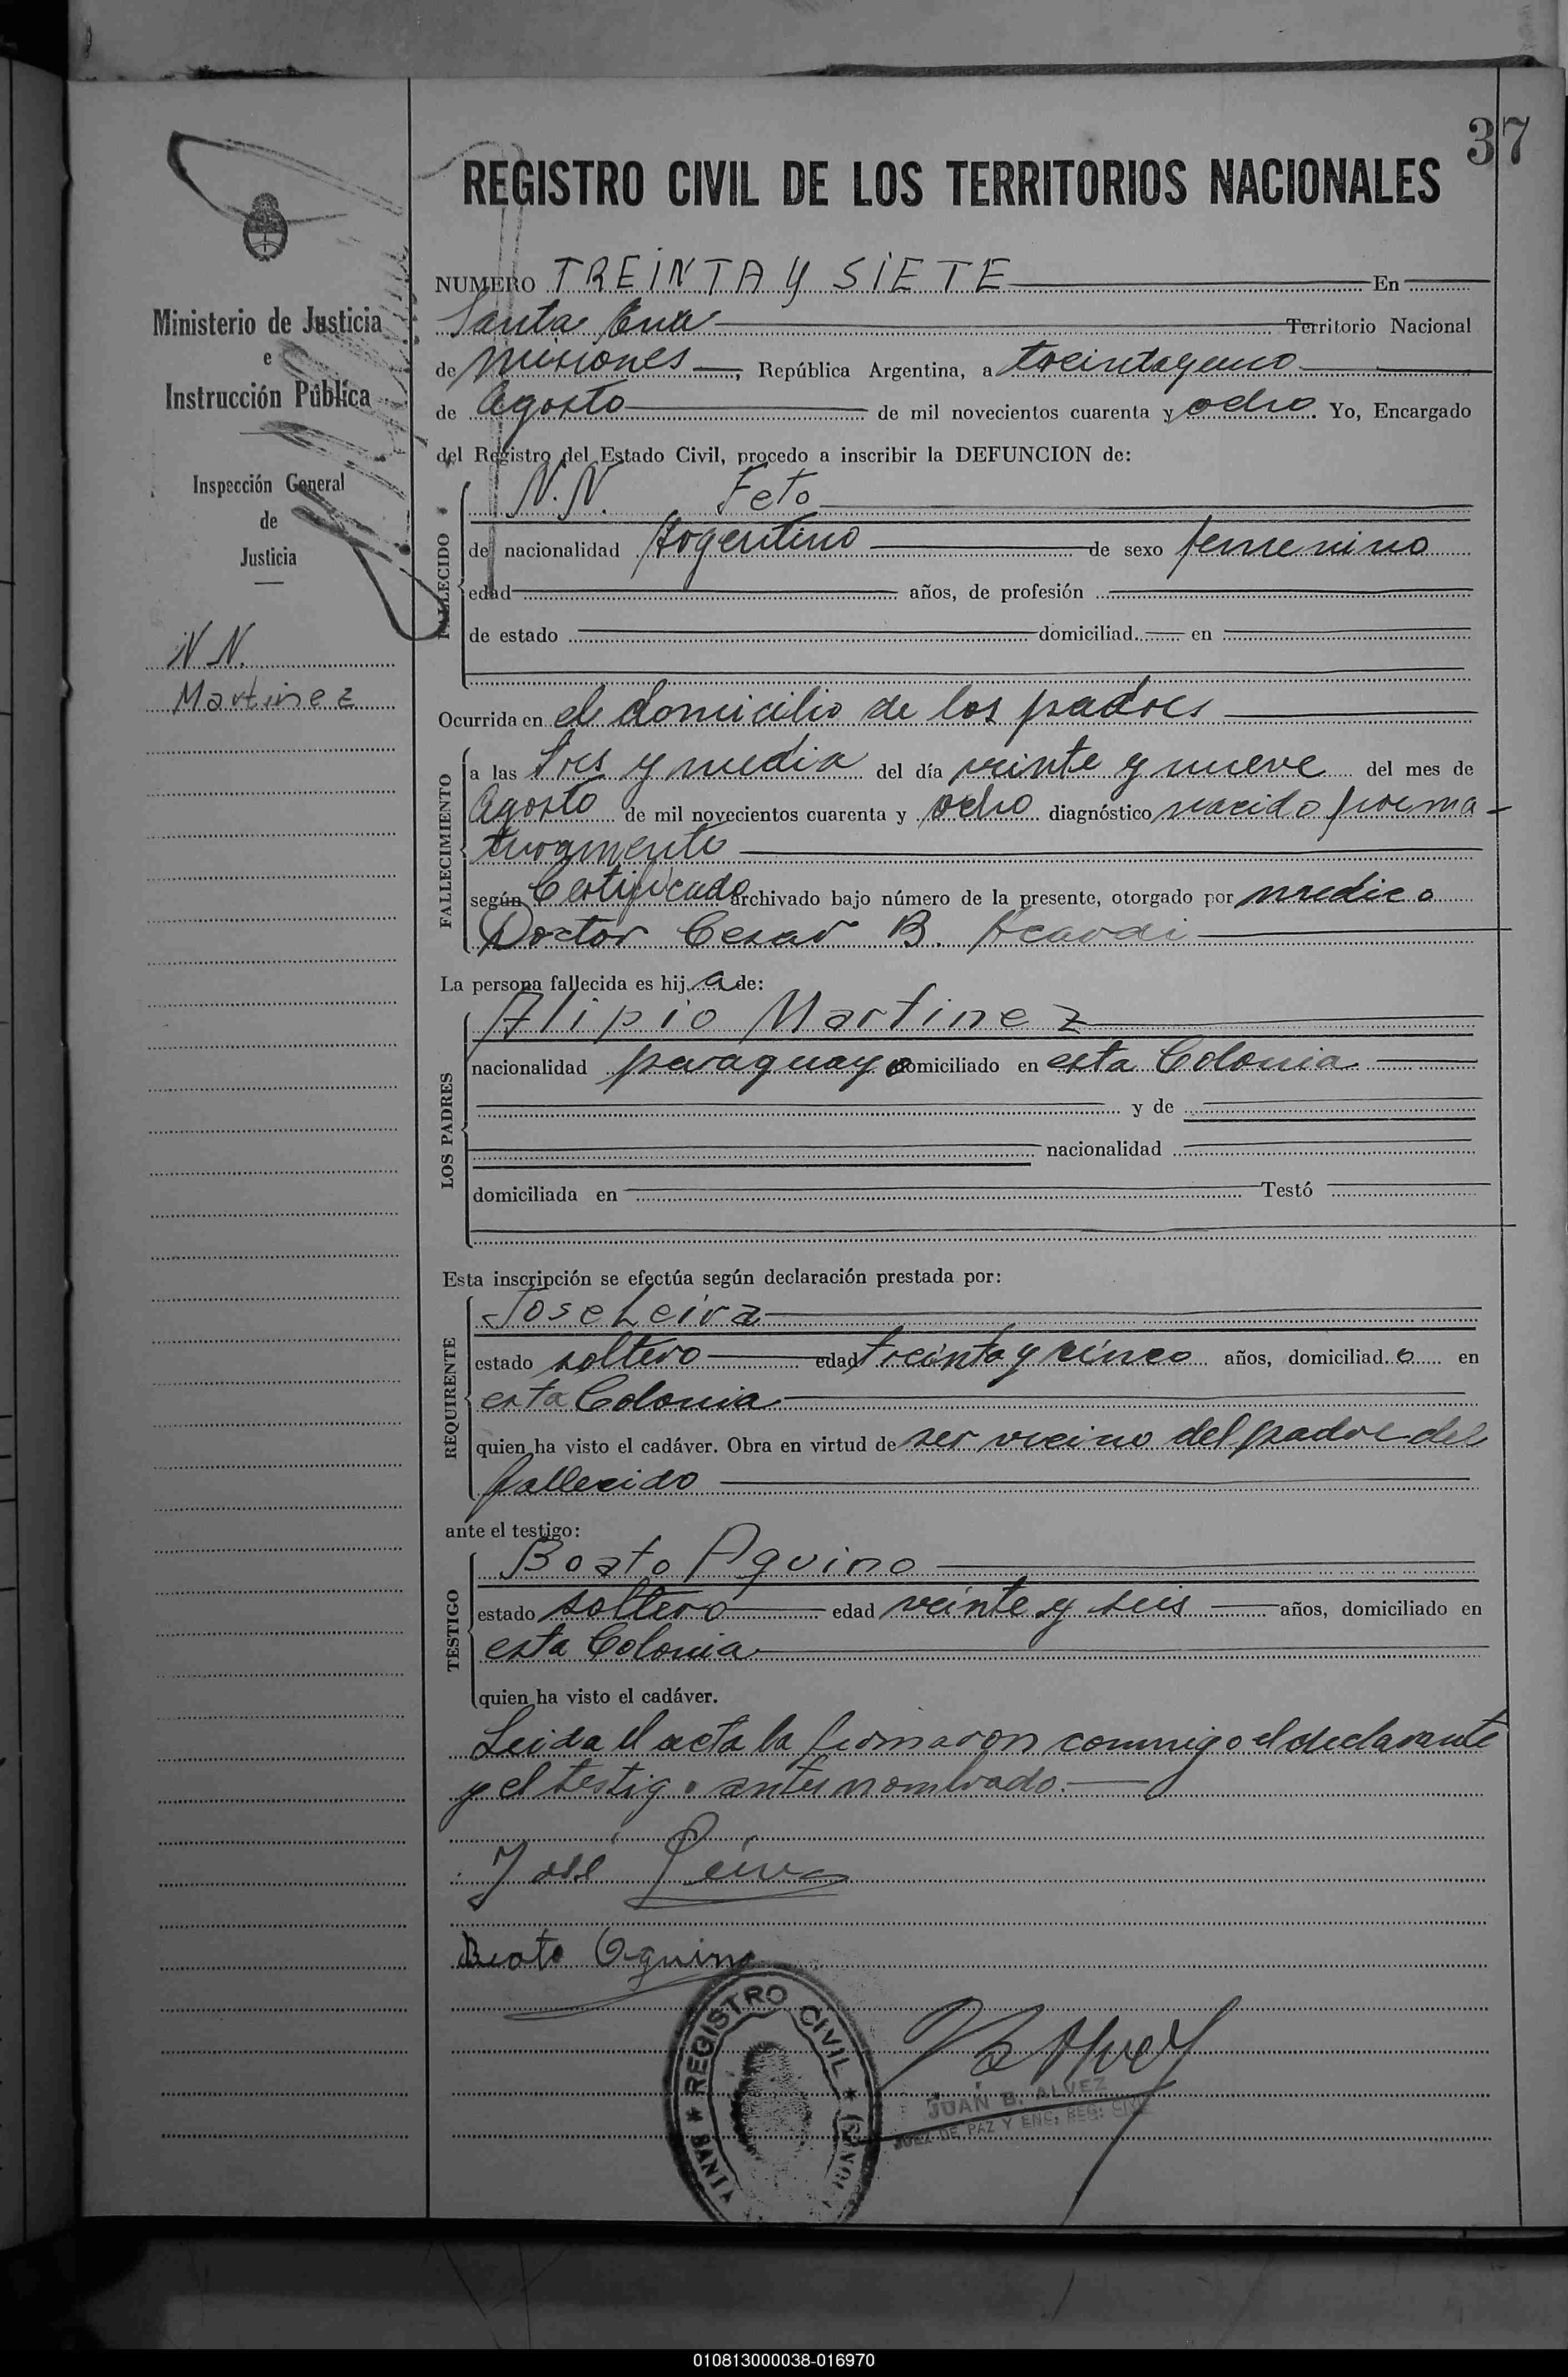 37
REGISTRO CIVIL DE LOS TERRITORIOS NACIONALES
Ministerio de Justicia
e
Instrucción Pública
Inspección General
de
Justicia
N N.
Martinez
NUMERO TREINTA Y SIETE En
Santa Ana Territorio Nacional
de Misiones, República Argentina, a treintayuno
de Agosto de mil novecientos cuarenta y ocho. Yo, Encargado
del Registro del Estado Civil, procedo a inscribir la DEFUNCION de:
FALLECIDO
N. N. Feto
de nacionalidad Argentino de sexo femenino
edad años, de profesión
de estado domiciliad en
Ocurrida en el domicilio de los padres
FALLECIMIENTO
a las tres y media del día veinte y nueve del mes de
Agosto de mil novecientos cuarenta y ocho diagnóstico nacido prema-
turamente
según Certificado archivado bajo número de la presente, otorgado por medico
Doctor Cesar B.
La persona fallecida es hija de:
LOS PADRES
Alipio Martinez
nacionalidad paraguayo domiciliado en esta Colonia
y de
nacionalidad
domiciliada en Testó
Esta inscripción se efectúa según declaración prestada por:
REQUIRENTE
Jose Leiva
estado soltero edad treinta y cinco años, domiciliado en
esta Colonia
quien ha visto el cadáver. Obra en virtud de ser vecino del padre del
fallecido
ante el testigo:
TESTIGO
Beato Aquino
estado soltero edad veinte y seis años, domiciliado en
esta Colonia
quien ha visto el cadáver.
Leida el acta la firmaron conmigo el declarante
y el testigo antes nombrado.
José Leiva
Beato Aquino
REGISTRO CIVIL
SANTA
JUAN B. ALVEZ
JUEZ DE PAZ Y ENC. REG. CIVIL
010813000038-016970